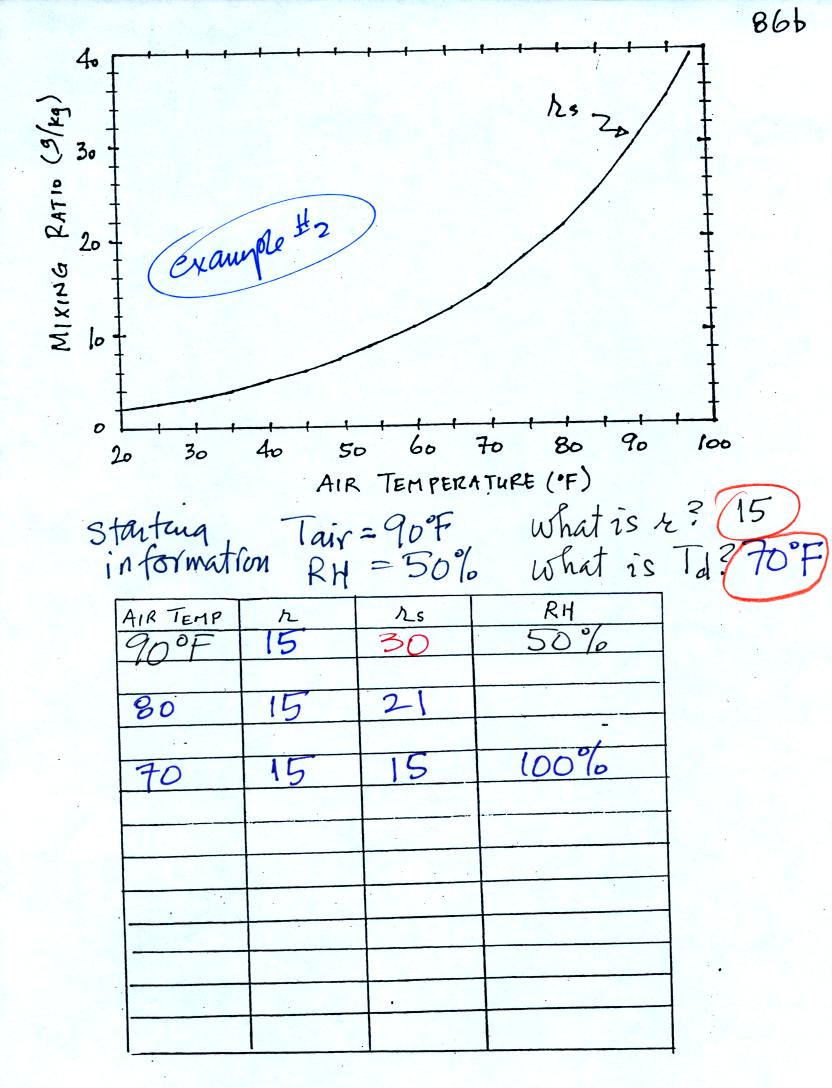 86b
40
30
20
10
0
MIXING RATIO (g/kg)
rs
example #2
20 30 40 50 60 70 80 90 100
AIR TEMPERATURE (°F)
Starting information
Tair = 90°F
RH = 50%
What is r? 15
What is Td? 70°F
AIR TEMP r rs RH
90°F 15 30 50%
80 15 21
70 15 15 100%